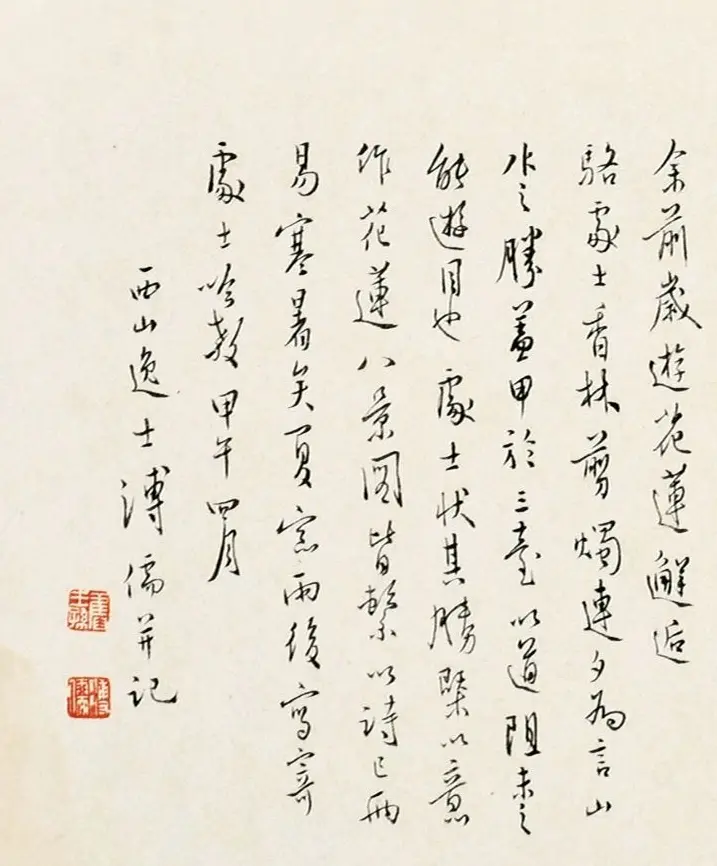 余前歲遊花蓮邂逅
駱處士香林剪燭連夕為言山
水之勝蓋甲於三臺以道阻未之
能遊目也處士狀其勝槩以意
作花蓮八景圖皆繫以詩已兩
易寒暑矣夏窓雨後寫寄
處士吟教甲午四月
西山逸士溥儒并記
舊王孫
溥儒